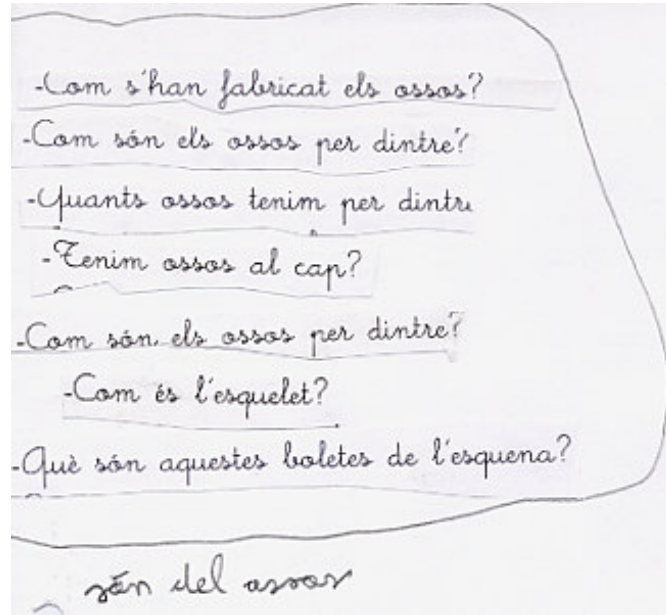 -Com s'han fabricat els ossos?
-Com són els ossos per dintre?
-Quants ossos tenim per dintre
-Tenim ossos al cap?
-Com són els ossos per dintre?
-Com és l'esquelet?
-Què són aquestes boletes de l'esquena?
són del ossos